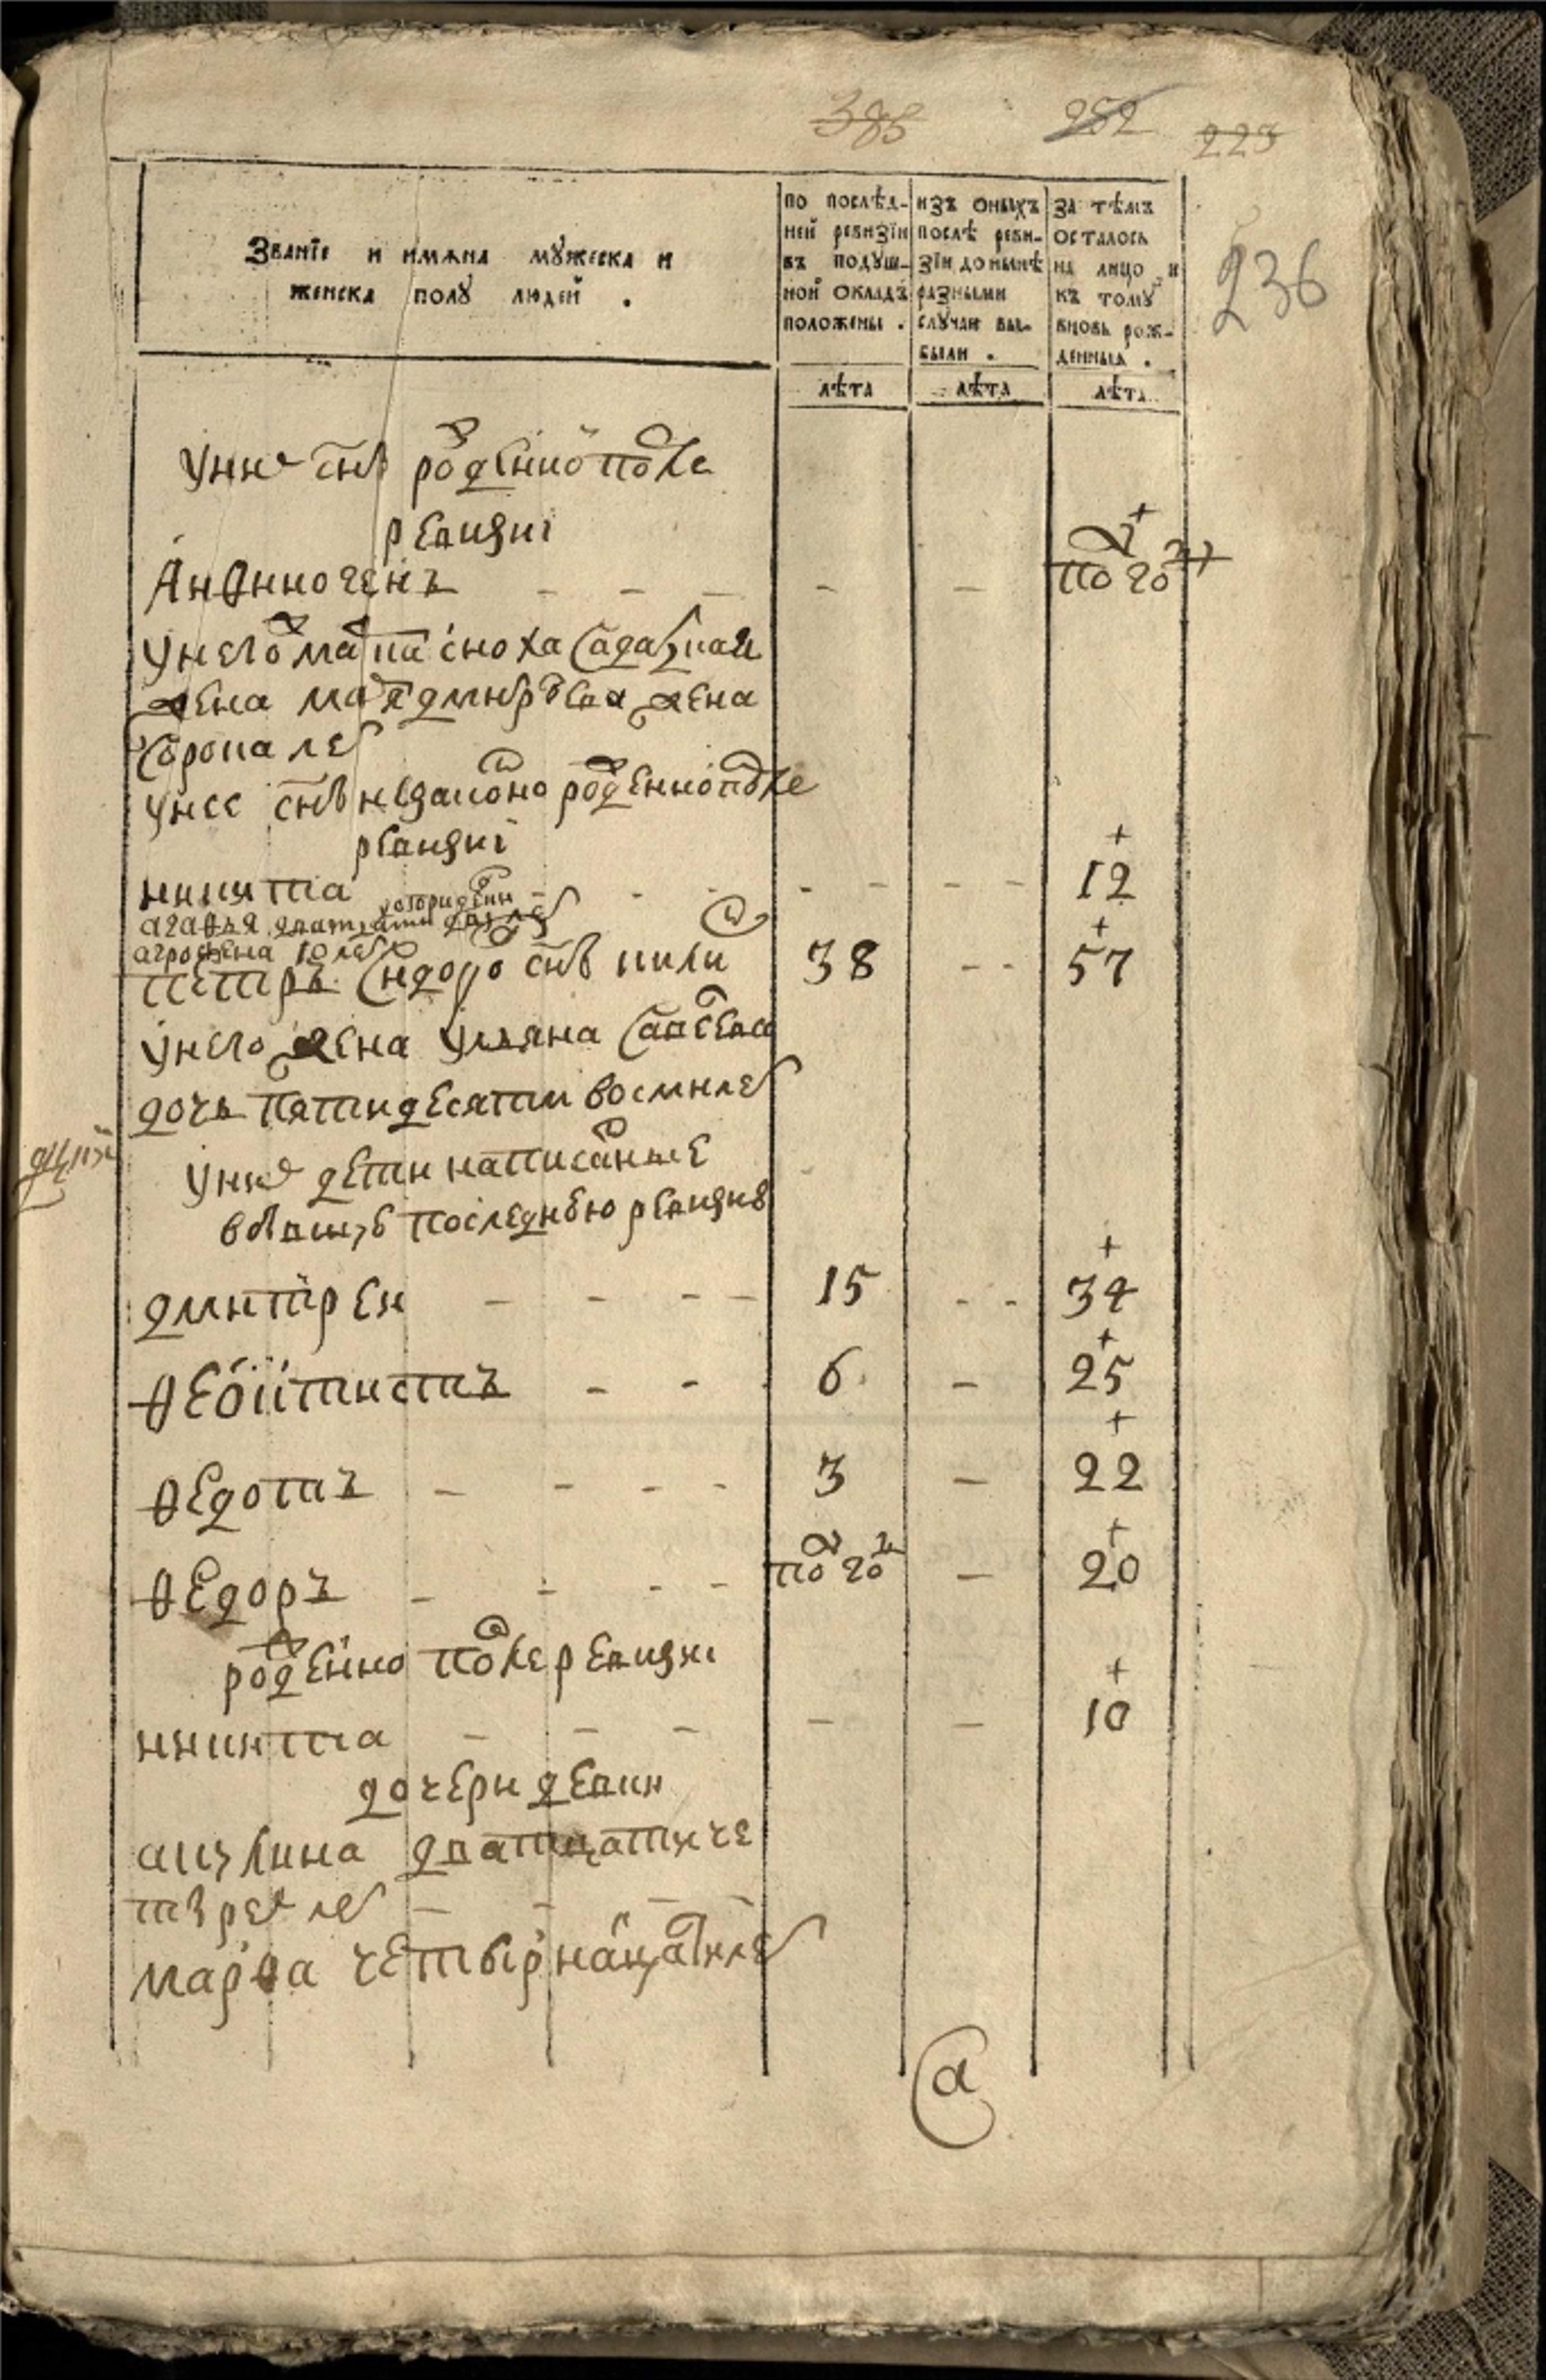 385 252 223
236
Званїе и имѧна мꙋжеска и
женска полꙋ людей .
по послѣд-
ней ревизїи
въ подуш-
ной окладъ
положены .
изъ оныхъ
послѣ реви-
зїи донынѣ
разными
случаи вы-
были .
за тѣмъ
осталось
на лицо и
къ томꙋ
вновь рож-
денныя .
лѣта лѣта лѣта
у них снъ рожденно после
ревизиі
Анθиногенъ - - - - - полгода
у него мат сноха салдацкая
жена дмитрева жена
сорока лет
у нее снъ незаконо рожденно после
ревизиі
+
никита - - - - - - 12
агаθья дватцати лет
агроθена 10 лет
+
петръ сидоро снъ 38 - - 57
у него жена уляна савеева
дочь пятидесяти восми лет
у них дети написаные
в бывшую последнюю ревизию
+
дмитреи - - - - 15 - - 34
+
θеоктистъ - - - 6 - 25
+
θедотъ - - - - 3 - 22
+
θедоръ - - - - полгода - 20
рожденно после ревизиі
+
никита - - - - - 10
дочери девки
акулина дватцати че
тырех лет - - - -
марθа четырнацати лет
а